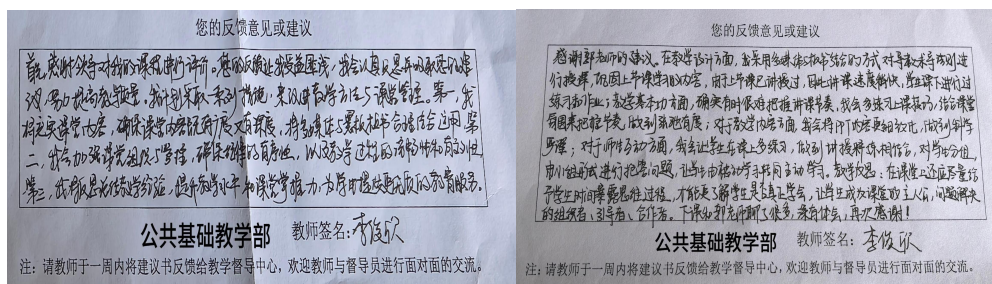 您的反馈意见或建议
首先感谢领导对我的课程进行评价。您的反馈让我受益匪浅,我会认真反思并如您的建
议,努力提高教学质量。我计划采取一系列措施,来改进教学方法与课堂管理。第一,我
将充实课堂内容,确保课堂内容既有广度又有深度,将多媒体与黑板板书合理结合运用。第
二,我会加强课堂组织与管理,确保纪律的有序性,以及教学过程的流畅性和有效性。
第三,我将反思总结教学经验,提升教学水平和课堂掌握力,为学生提供更优质的教育服务。
公共基础教学部 教师签名:李俊欣
注:请教师于一周内将建议书反馈给教学督导中心,欢迎教师与督导员进行面对面的交流。
您的反馈意见或建议
感谢郭老师的建议。在教学设计方面,会采用多媒体与板书结合的方式对导数求导法则进
行授课,巩固上节课学习的内容,由于上节课已讲授过,因此讲课速度稍快,学生课下进行过
练习和作业;教学基本功方面,确实有时很难把握讲课节奏,我会多练习上课技巧,结合课堂
氛围来把控节奏,做到张弛有度;对于教学内容方面,我会将PPT内容更细致化,做到科学
严谨;对于师生互动方面,我会让学生在课上多练习,做到讲授解练相结合,对学生分组,
由小组形式进行抢答问题,让学生由被动学习转为主动学习。教学反思:在课堂上还应尽量给
予学生时间暴露思维过程,才能更了解学生是否真正学会,让学生成为课堂的主人翁,问题解决
的组织者、引导者、合作者。下课和郭老师聊了很多,亲身体会,再次感谢!
公共基础教学部 教师签名:李俊欣
注:请教师于一周内将建议书反馈给教学督导中心,欢迎教师与督导员进行面对面的交流。